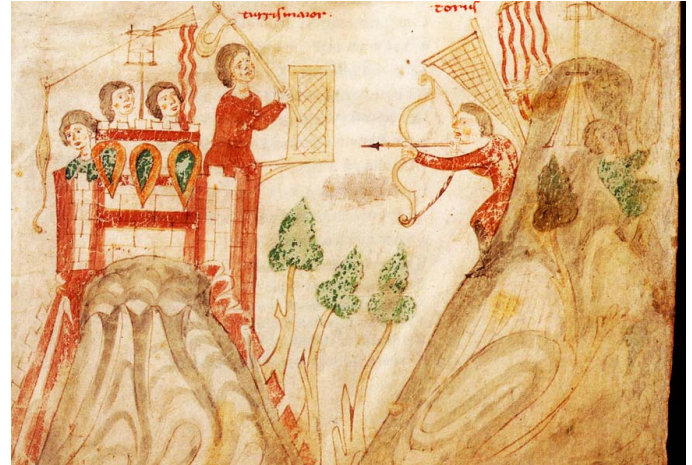 turris maior.
torus